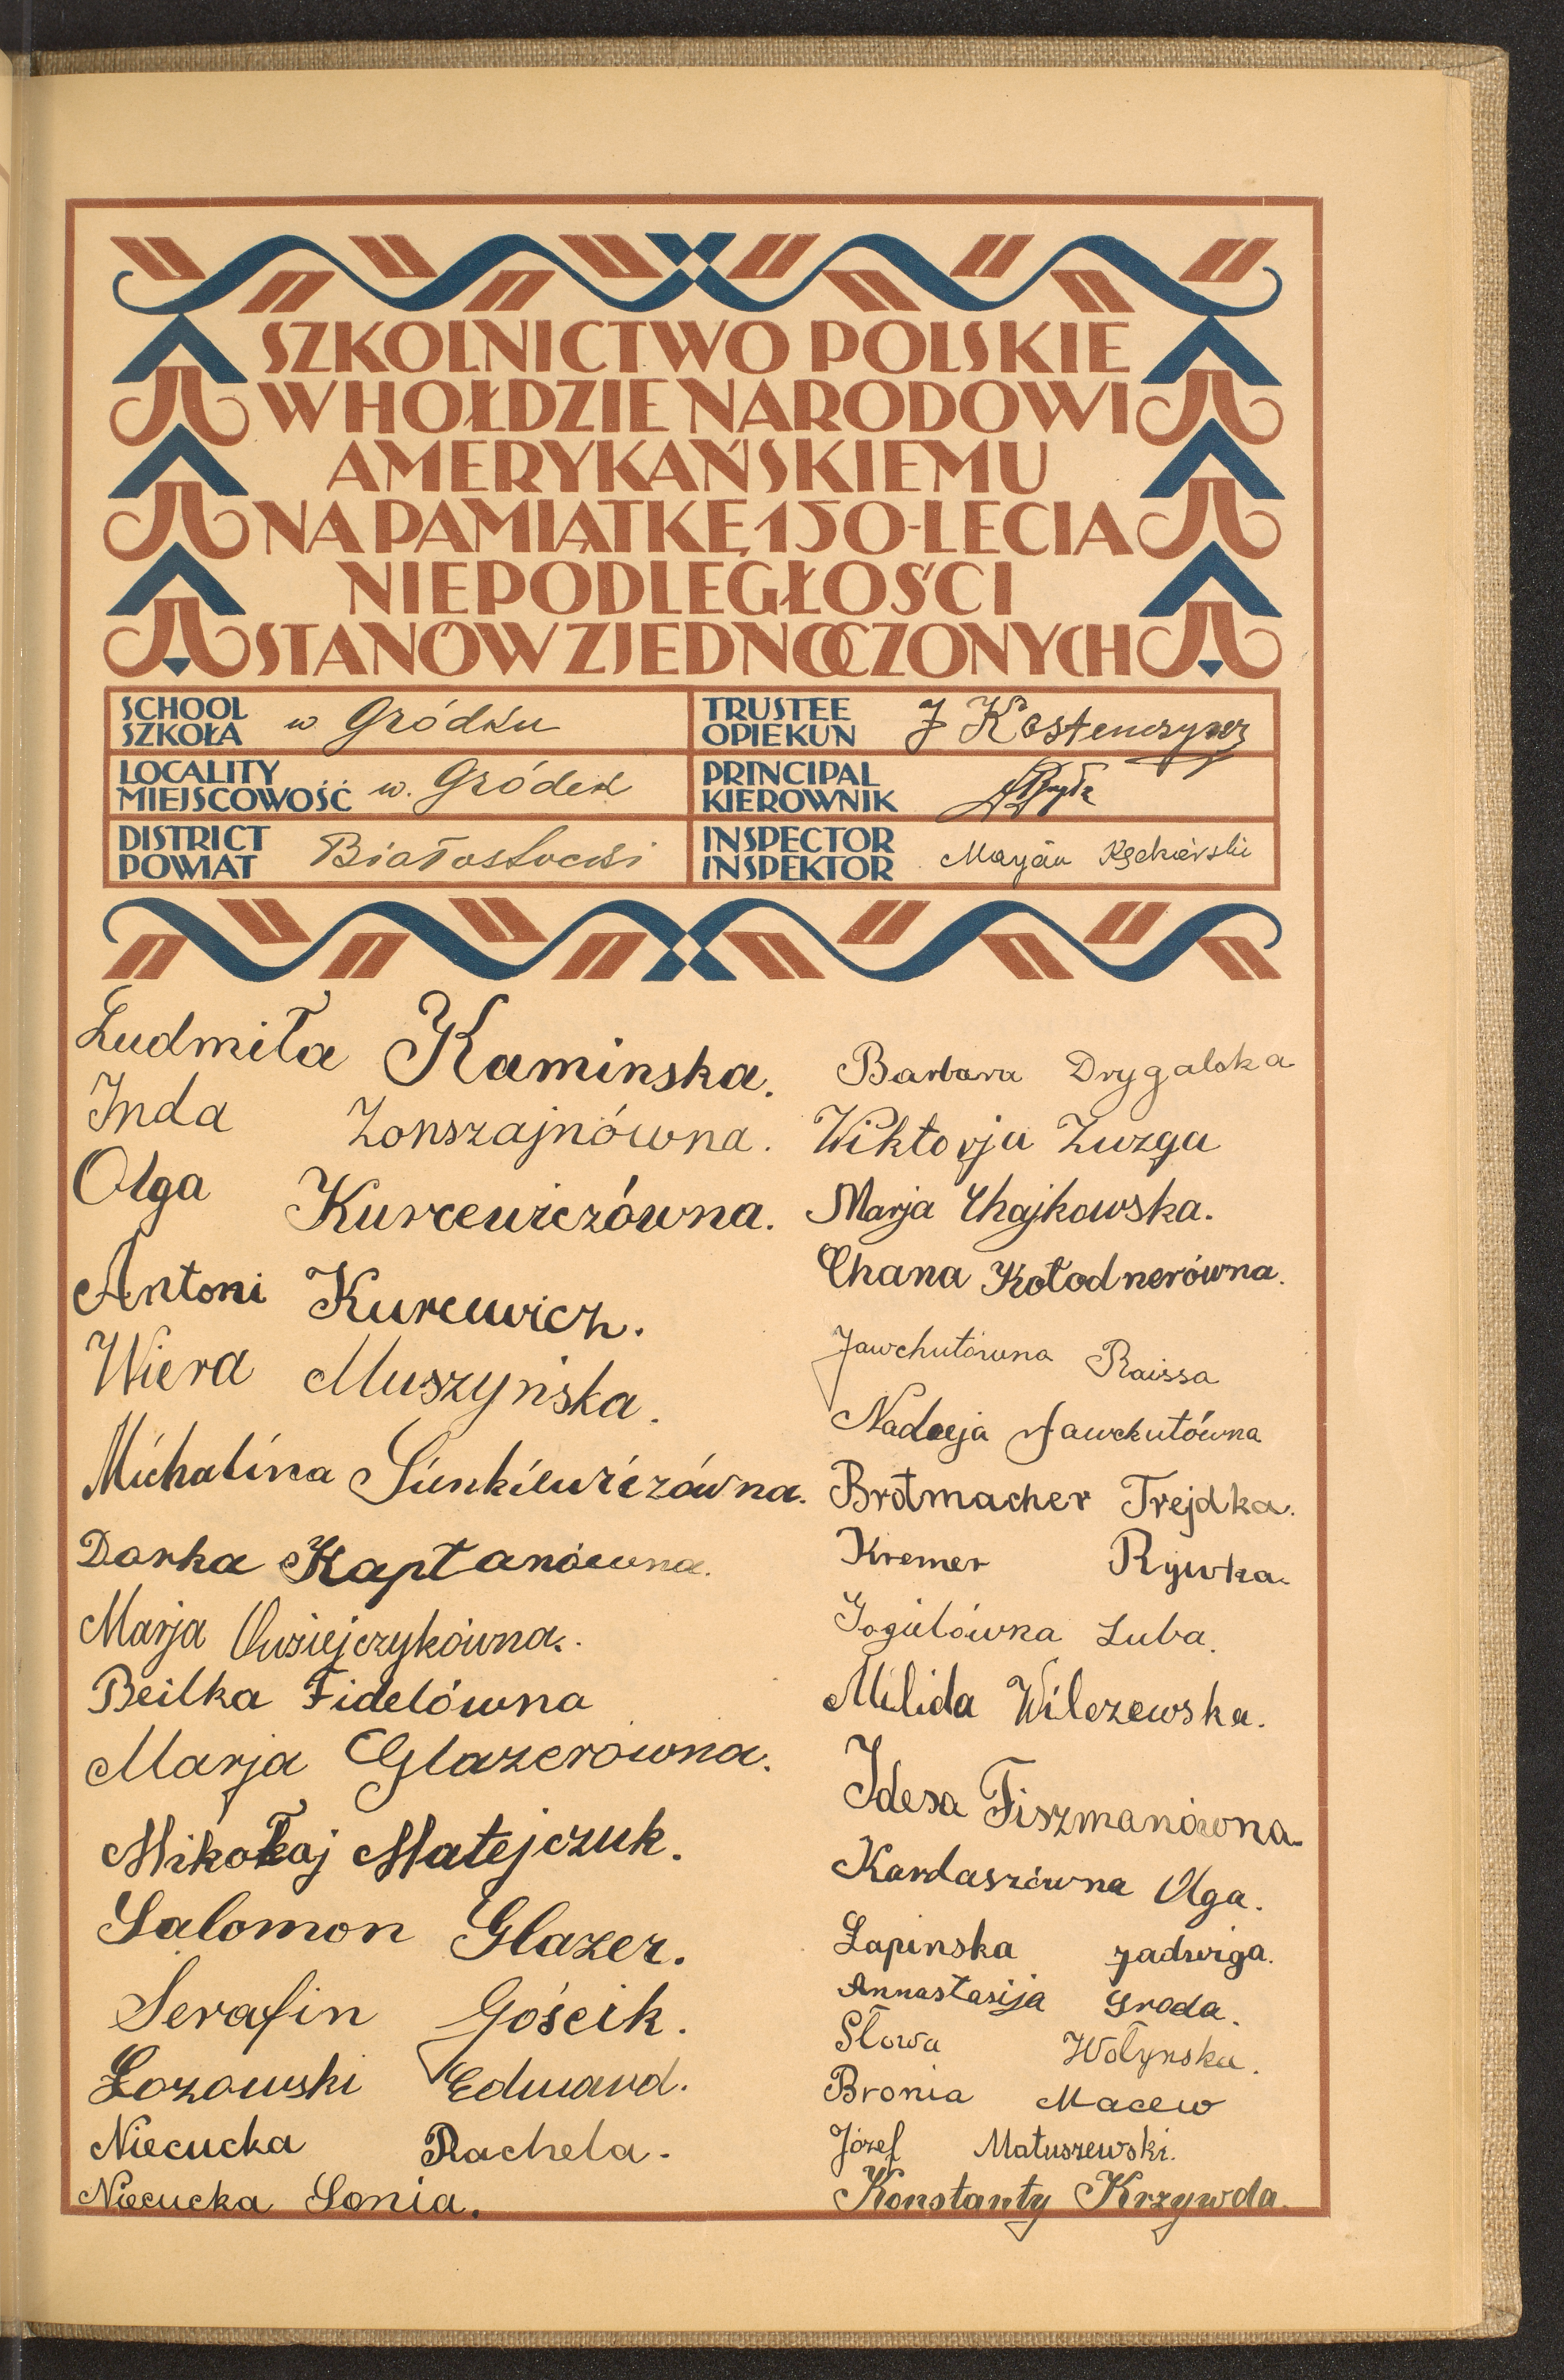 SZKOLNICTWO POLSKIE
W HOŁDZIE NARODOWI
AMERYKAŃSKIEMU
NA PAMIĄTKĘ 150-LECIA
NIEPODLEGŁOŚCI
STANÓW ZJEDNOCZONYCH
SCHOOL
SZKOŁA w Gródku
TRUSTEE
OPIEKUN J
LOCALITY
MIEJSCOWOŚĆ w. Gródek
PRINCIPAL
KIEROWNIK
DISTRICT
POWIAT Białostocki
INSPECTOR
INSPEKTOR Maryan
Ludmiła Kaminska.
Inda Zonszajnówna.
Olga Kurcewiczówna.
Antoni Kurcewicz.
Wiera Muszyńska.
Michalina Sienkiewiczówna.
Dorka Kaptanówna.
Marja Owsiejczykówna.
Beilka Fidelówna
Marja Glazerówna.
Mikołaj Matejczuk.
Salomon Glazer.
Serafin Gościk.
Łozowski Edward.
Niecucka Rachela.
Niecucka Sonia.
Barbara Drygalska
Wiktorja Zuzga
Marja Chajkowska.
Chana Kołodnerówna.
Jawchutówna Raissa
Nadzeja Jawchutówna
Brotmacher Frejdka.
Kremer Rywka.
Luba.
Milida Wilczewska.
Idesa Fiszmanówna.
Kardaszówna Olga.
Łapinska Jadwiga.
Annastasija Groda.
Słowa Wołynska.
Bronia Macew
Józef Matuszewski.
Konstanty Krzywda.